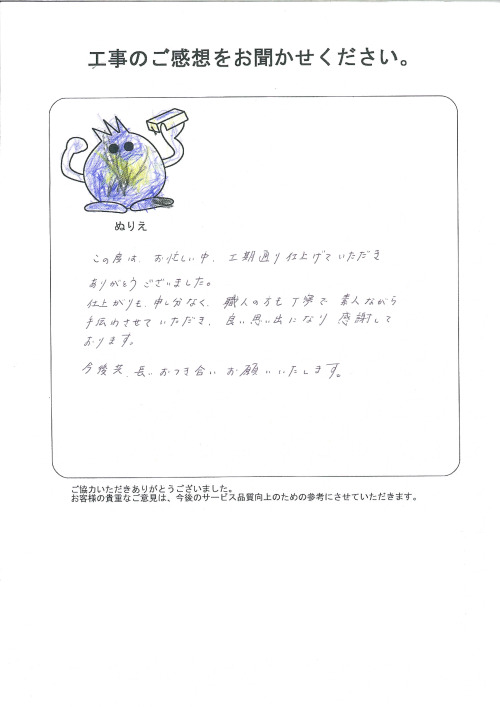 工事のご感想をお聞かせください。
ぬりえ
この度は、お忙しい中、工期通り仕上げていただき
ありがとうございました。
仕上がりも、申し分なく、職人の方も丁寧で 素人ながら
手伝わさせていただき、良い思い出になり 感謝して
おります。
今後共、長いおつき合い お願いいたします。
ご協力いただきありがとうございました。
お客様の貴重なご意見は、今後のサービス品質向上のための参考にさせていただきます。